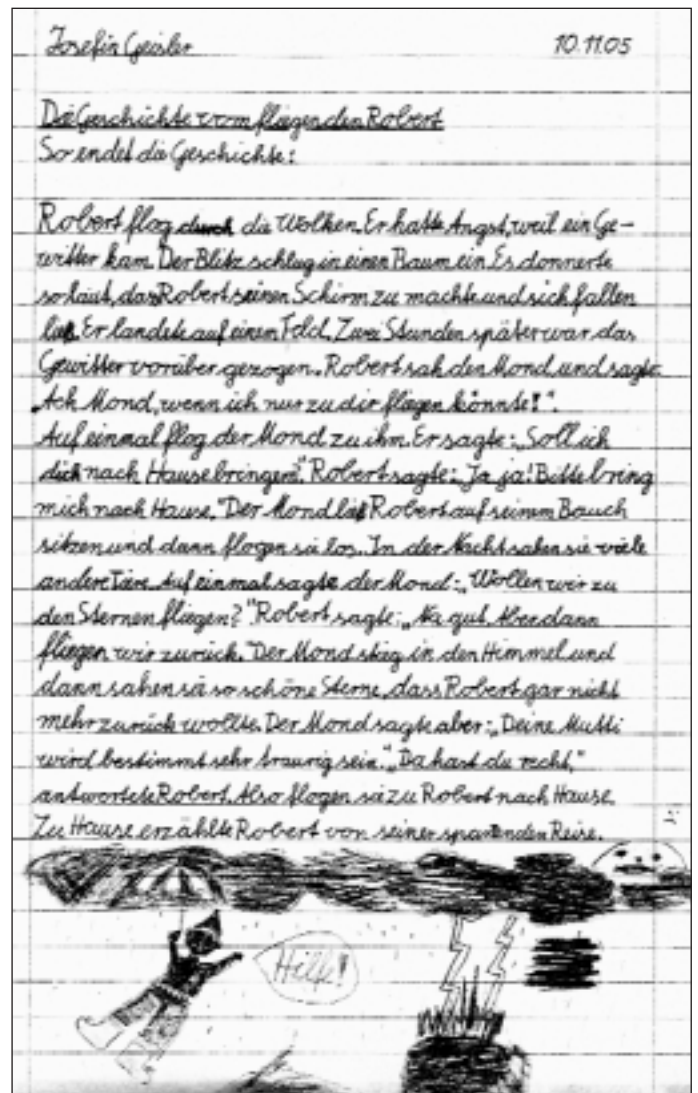 Josefin Geisler 10.11.05
Die Geschichte vom fliegenden Robert
So endet die Geschichte:
Robert flog durch die Wolken. Er hatte Angst, weil ein Ge-
witter kam. Der Blitz schlug in einen Baum ein. Es donnerte
so laut, das Robert seinen Schirm zu machte und sich fallen
ließ. Er landete auf einen Feld. Zwei Stunden später war das
Gewitter vorüber gezogen. Robert sah den Mond und sagte:
„Ach Mond, wenn ich nur zu dir fliegen könnte!".
Auf einmal flog der Mond zu ihm. Er sagte: „Soll ich
dich nach Hause bringen?" Robert sagte: „Ja ja! Bitte bring
mich nach Hause." Der Mond ließ Robert auf seinem Bauch
sitzen und dann flogen sie los. In der Nacht sahen sie viele
andere Tiere. Auf einmal sagte der Mond: „Wollen wir zu
den Sternen fliegen?" Robert sagte: „Na gut. Aber dann
fliegen wir zurück." Der Mond stieg in den Himmel und
dann sahen sie so schöne Sterne, dass Robert gar nicht
mehr zurück wollte. Der Mond sagte aber: „Deine Mutti
wird bestimmt sehr traurig sein." „Da hast du recht,"
antwortete Robert. Also flogen sie zu Robert nach Hause.
Zu Hause erzählte Robert von seiner spannenden Reise.
Hilfe!